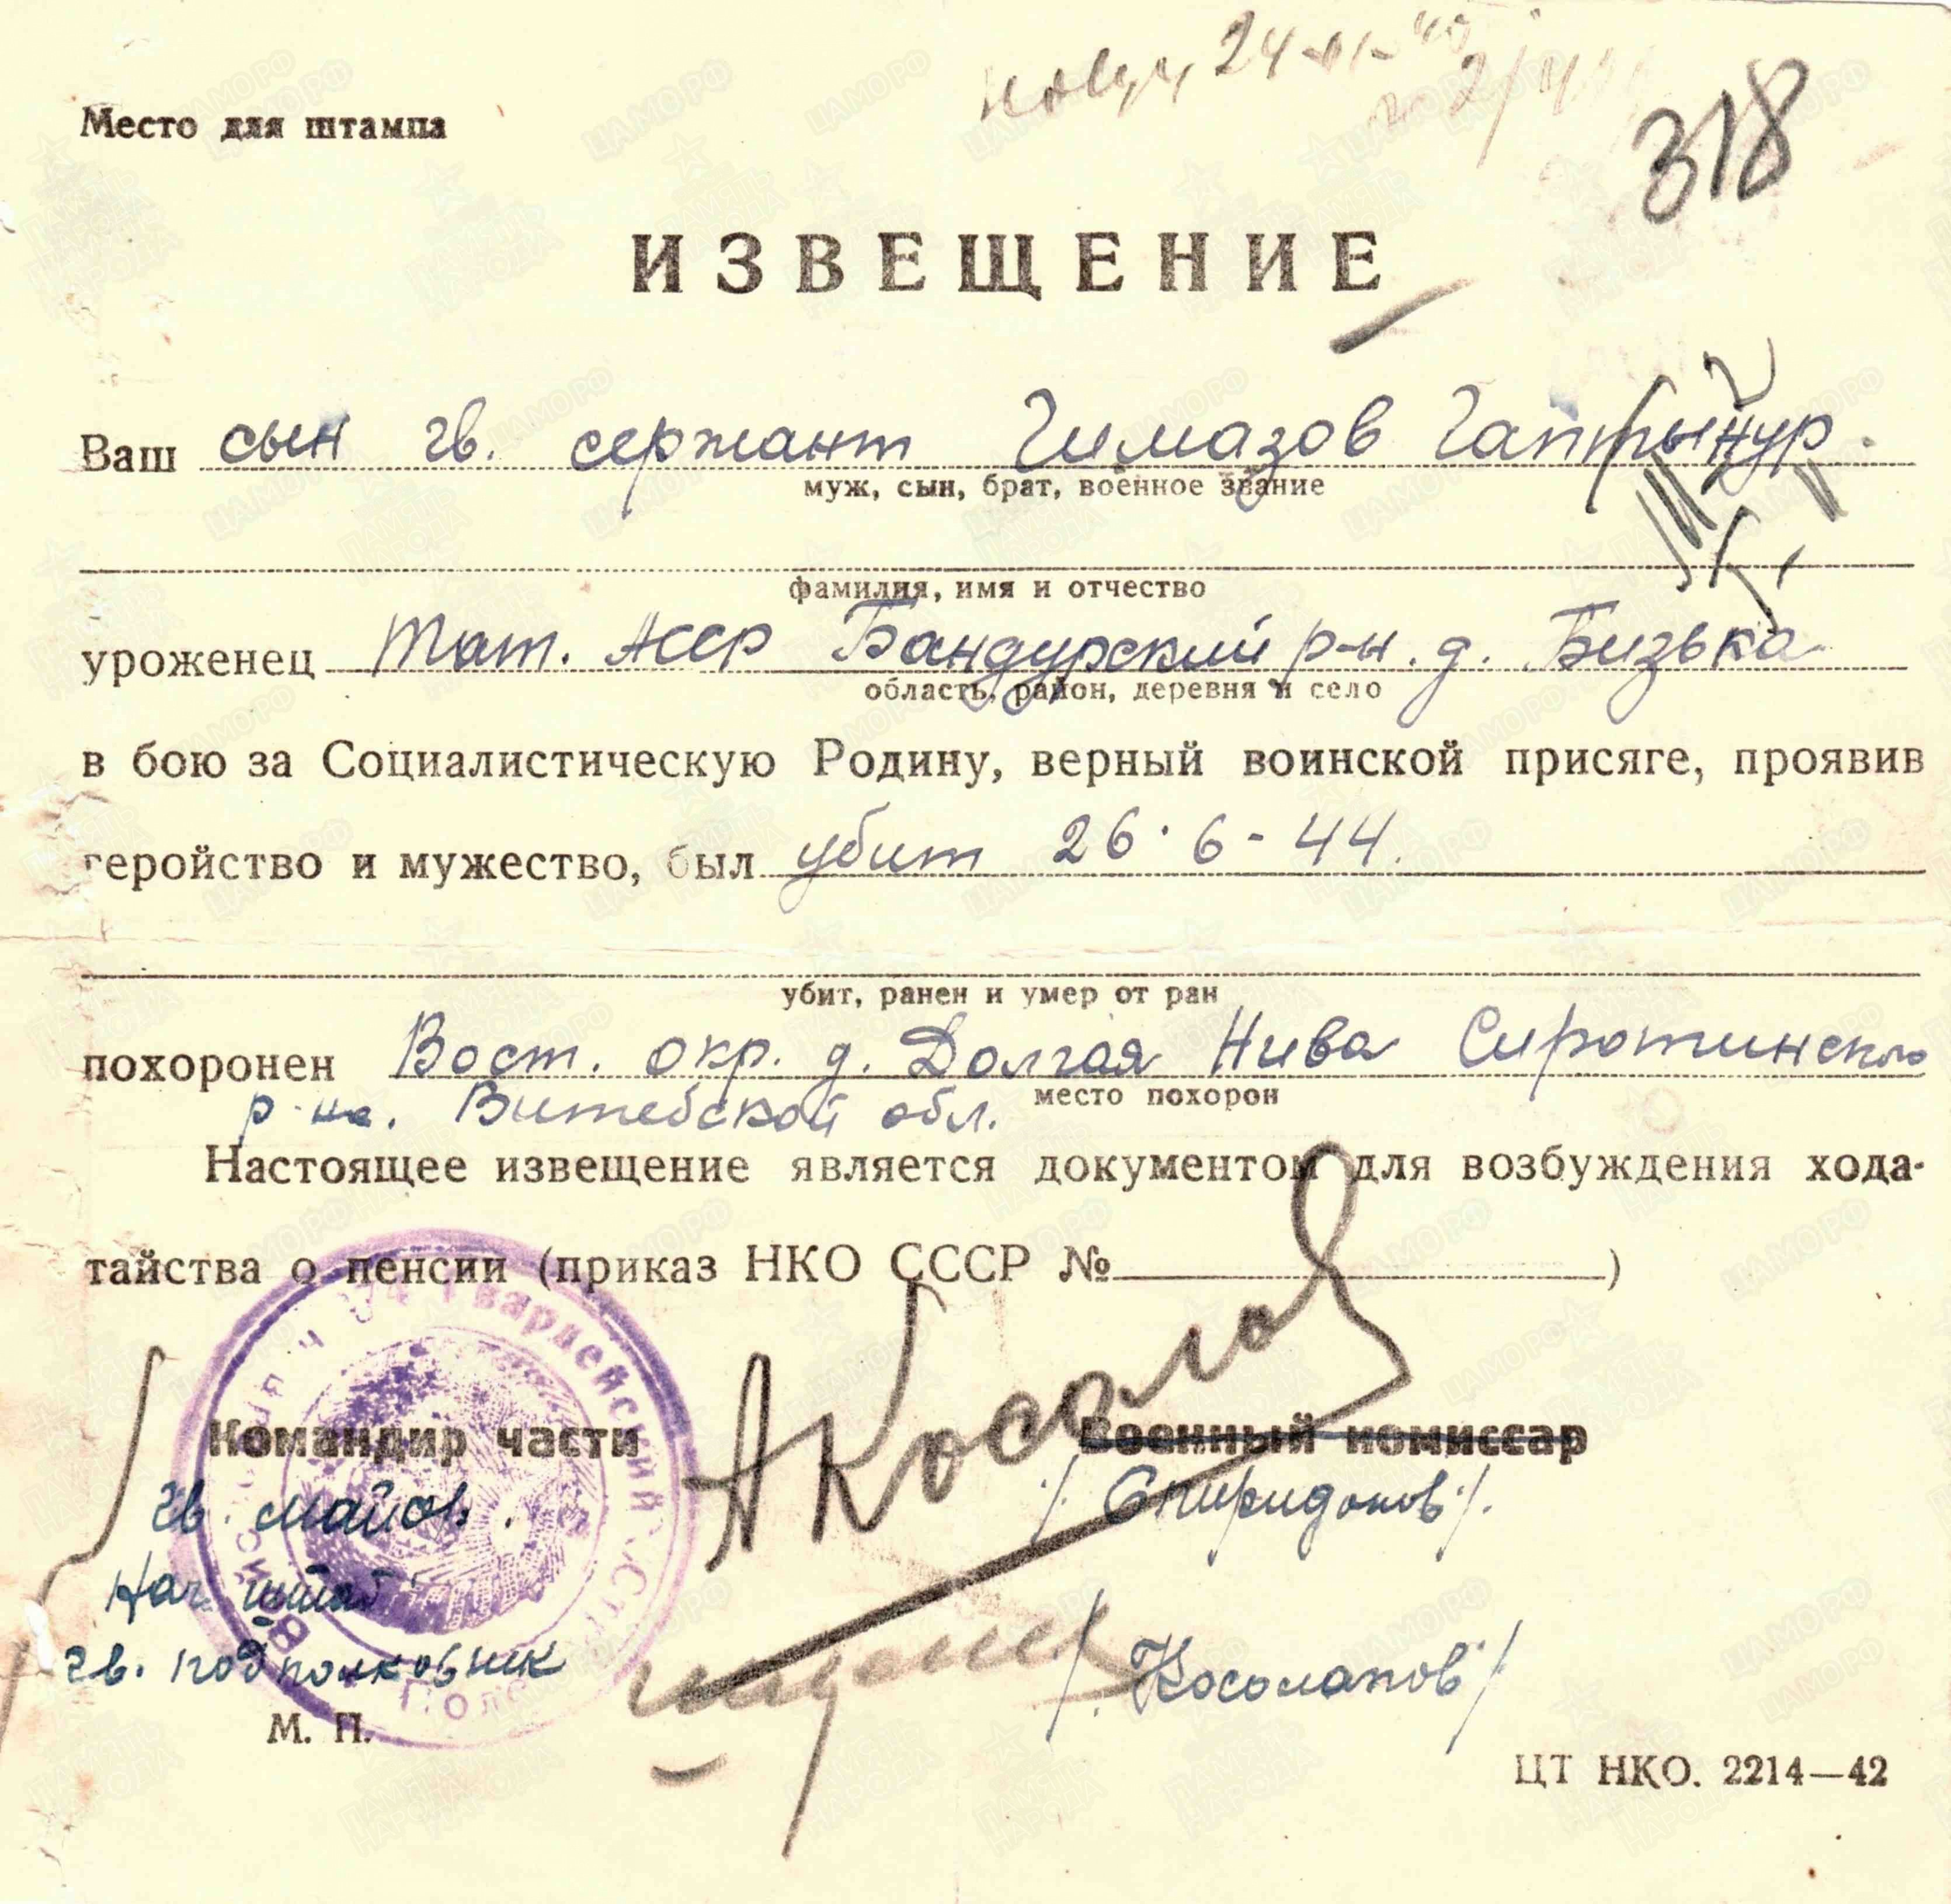 24
318
Место для штампа
ИЗВЕЩЕНИЕ
Ваш сын гв. сержант Гимазов Гаптынур.
муж, сын, брат, военное звание
фамилия, имя и отчество
уроженец Тат. АССР Бандурский р-н. д. Бизька
область, район, деревня и село
в бою за Социалистическую Родину, верный воинской присяге, проявив
геройство и мужество, был убит 26·6-44.
убит, ранен и умер от ран
похоронен Вост. окр. д. Долгая Нива Сиротинского
место похорон
р-на. Витебской обл.
Настоящее извещение является документом для возбуждения хода-
тайства о пенсии (приказ НКО СССР №)
Гвардейский
АКосолап
Командир части Военный комиссар
гв. майор. /Спиридонов/.
Нач штаб
гв. подполковник /Косолапов/
М. П.
ЦТ НКО. 2214—42